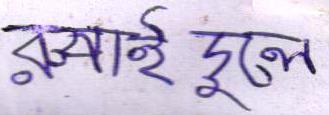 রসাই দুলে